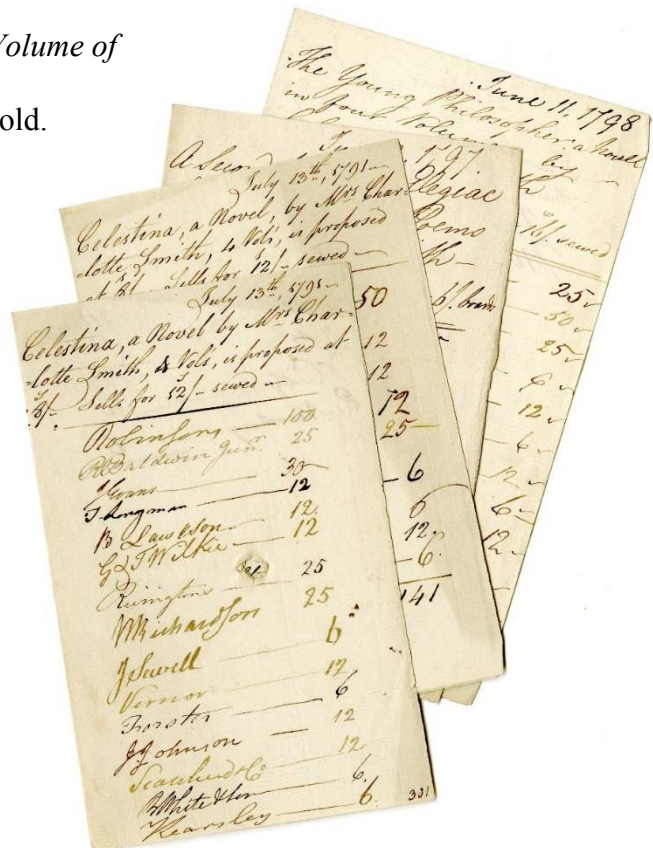 Volume of
old.
June 11, 1798
The Young Philosopher, a Novel
in four Volumes by
16/- sewed
25
50
25
6
12
6
12
6
12
1797
A Second
Elegiac
Poems
6/. boards
72
25
6
6
12
6
141
July 13th, 1791
Celestina, a Novel, by Mrs Char-
lotte Smith, 4 Vols, is proposed
at 8/- Sells for 12/- sewed
50
12
12
July 13th, 1791
Celestina, a Novel by Mrs Char-
-lotte Smith, 4 Vols, is proposed at
8/- Sells for 12/- sewed
Robinsons 100
R Baldwin Junr. 25
Evans 30
T Longman 12
B Law & Son 12
G & T Wilkie 12
Rivingtons 25
W Richardson 25
J Sewell 6
Vernor 12
Forster 6
J Johnson 12
Scatcherd & Co 12
B White & Son 6
Kearsley 6
301